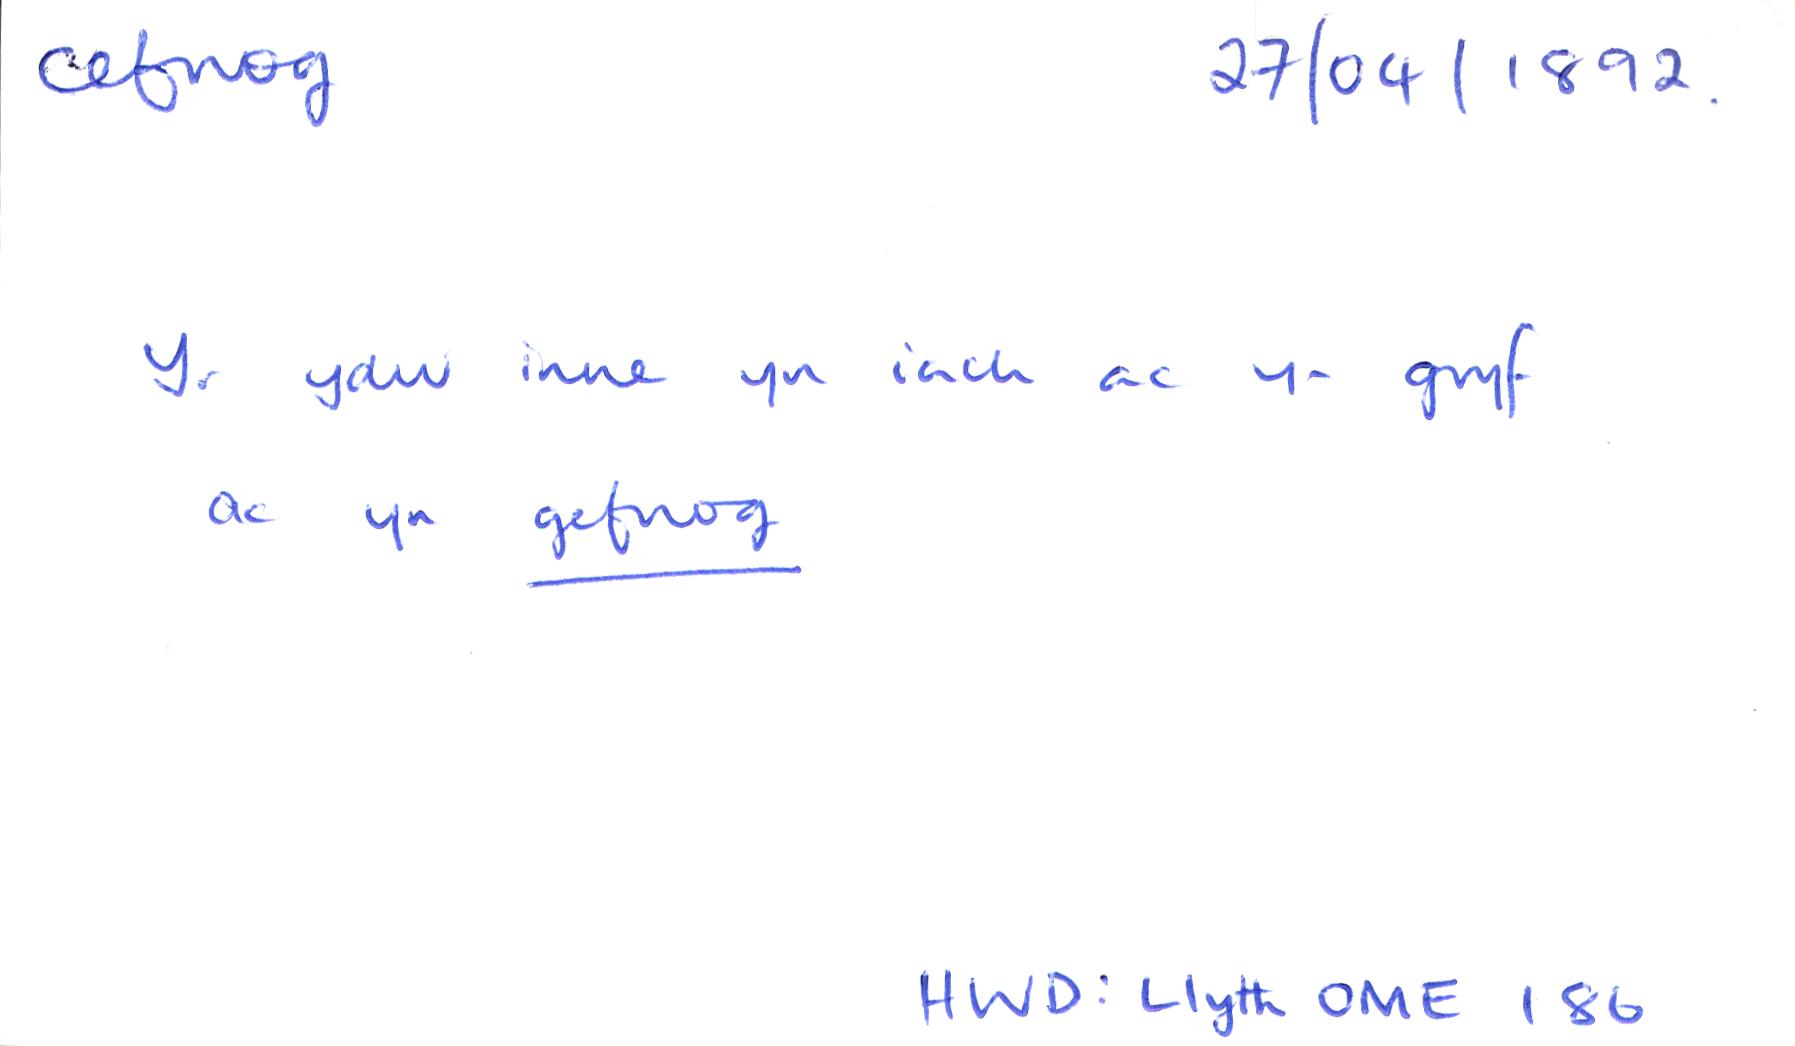 cefnog 27/04/1892.
Yr ydw inne yn iach ac yn gryf
ac yn gefnog
HWD: Llyth OME 186